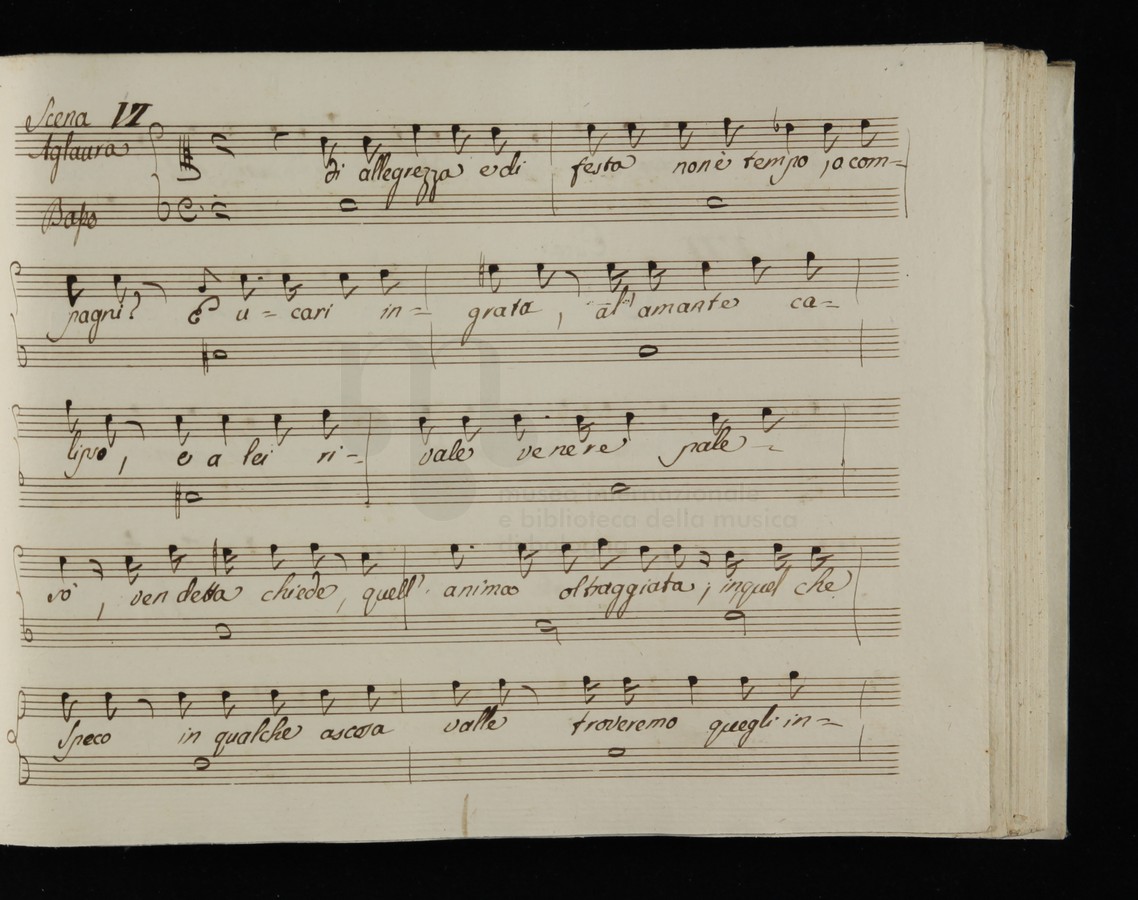 Scena VI
Aglaura
Di allegrezza e di festa non è tempo, o com=
Basso
pagni? E u=cari in=grata, al' amante ca=
lipso, e a lei ri=vale venere pale=
sò, vendetta chiede, quell' anima oltraggiata; in quel che
speco in qualche ascosa valle troveremo quegli in=
museo internazionale
e biblioteca della musica